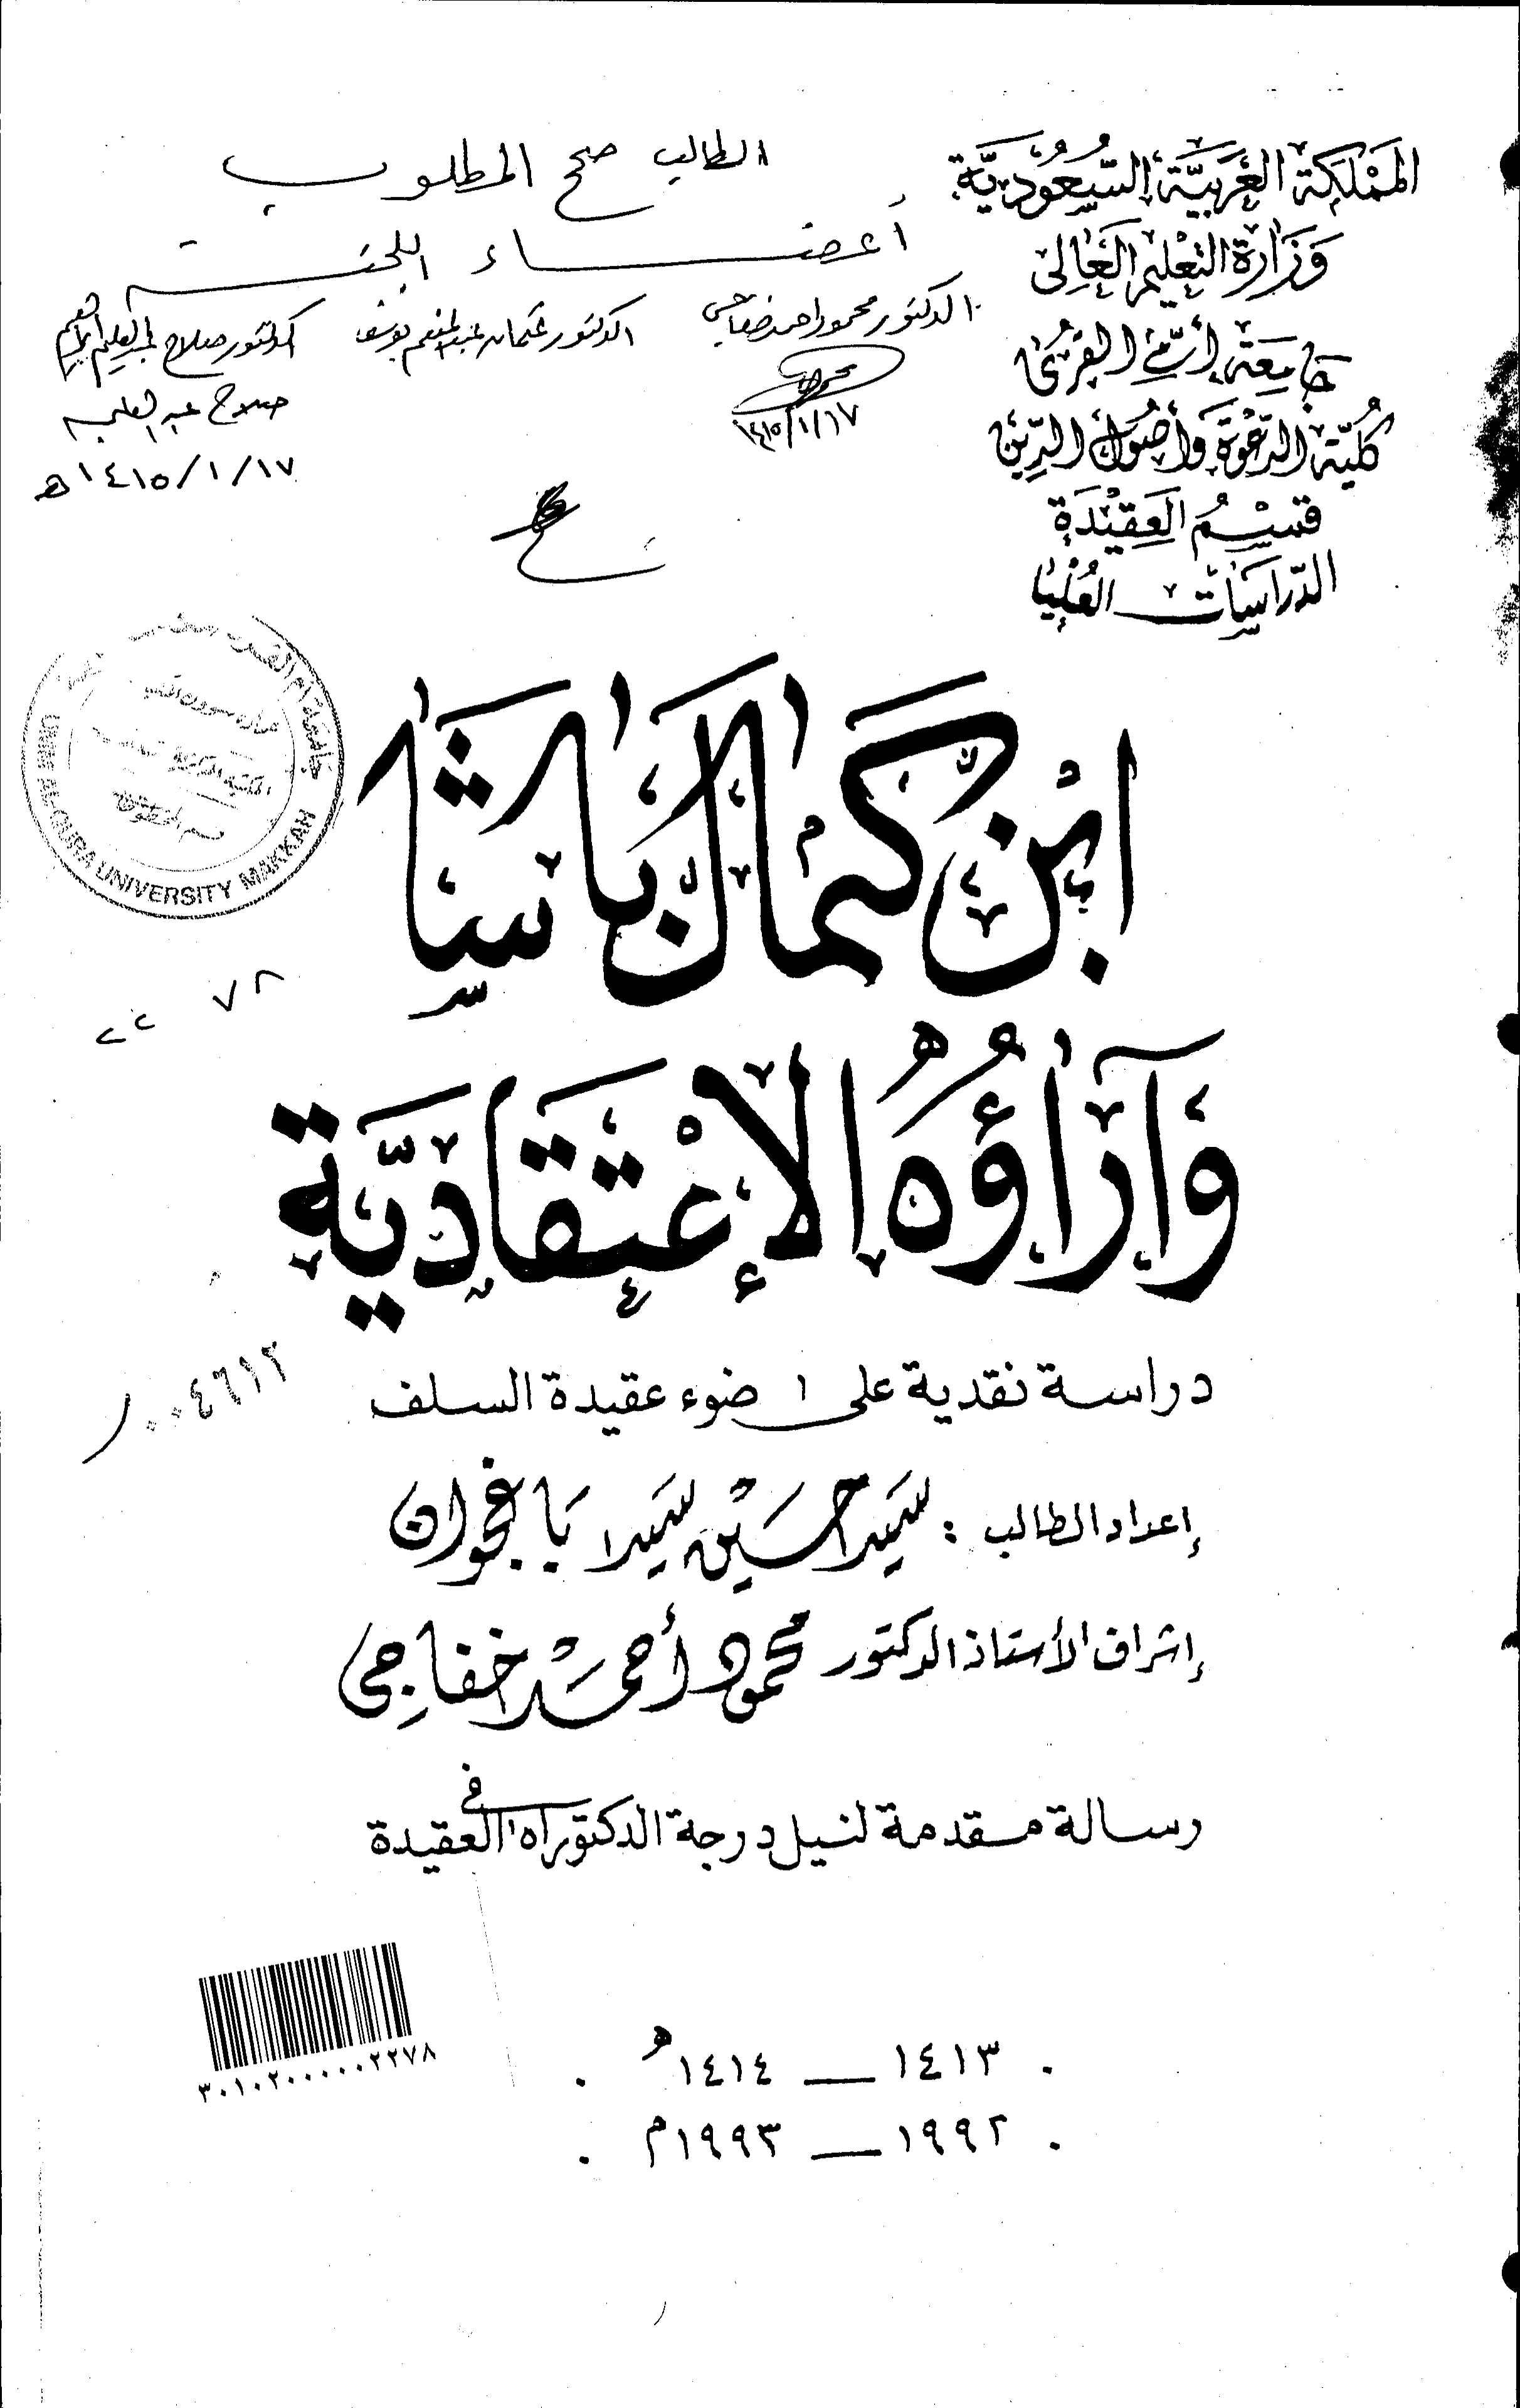 المَمْلَكَة العَرَبِيَّة السُّعُودِيَّة
وَزَارَة التَّعْلِيم العَالِي
جَامِعَة أُمّ القُرَى
كُلِّيَّة الدَّعْوَة وَأُصُول الدِّين
قِسْمُ العَقِيْدَة
الدِّرَاسَات العُلْيَا
الطالب صحح المطلوب
أعضاء اللجنة
الدكتور محمود احمد خفاجي
الدكتور عثمان عبد المنعم يوسف
الدكتور صلاح عبد العليم إبراهيم
١٤١٥/١/١٧
صلاح عبد العليم
١٤١٥/١/١٧ هـ
جامعة أم القرى
UMM AL-QURA UNIVERSITY MAKKAH
ابْن كَمَال بَاشَا
وَآرَاؤُهُ الإِعْتِقَادِيَّة
٠٠٤٦١٢
دراسة نقدية على ضوء عقيدة السلف
إعداد الطالب : سَيِّد حُسَيْن سَيِّد بَاغجوان
إشراف الأستاذ الدكتور محمود أحمَد خفاجي
رسالة مقدمة لنيل درجة الدكتوراه في العقيدة
١٤١٣ — ١٤١٤ هـ
١٩٩٢ — ١٩٩٣م
٣٠١٠٢٠٠٠٠٠٢٢٧٨